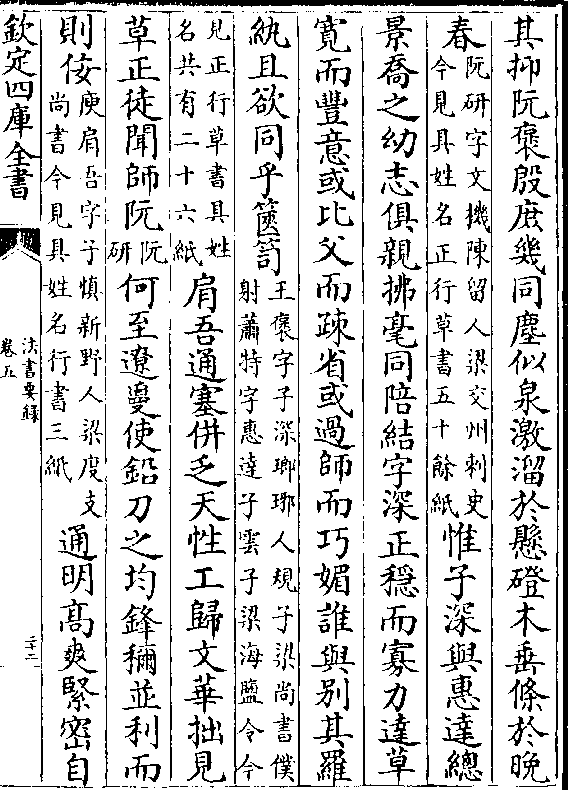 其抑阮褒殷庶幾同塵似泉激溜於懸磴木垂條於晚
春阮研字文機陳留人梁交州刺史今見具姓名正行草書五十餘紙惟子深與惠達總
景喬之幼志俱親拂毫同陪結字深正穩而寡力達草
寛而豐意或比父而疎省或過師而巧媚誰與別其羅
紈且欲同乎篋笥王褒字子深瑯琊人規子梁尚書僕射蕭特字惠達子雲子梁海鹽令今
見正行草書具姓名共有二十六紙肩吾通塞併乏天性工歸文華拙見
草正徒聞師阮阮研何至遼敻使鉛刀之均鋒穪並利而
則佞庾肩吾字子慎新野人梁度支尚書今見具姓名行書三紙通明髙爽緊密自
欽定四庫全書
法書要録
卷五
二十二